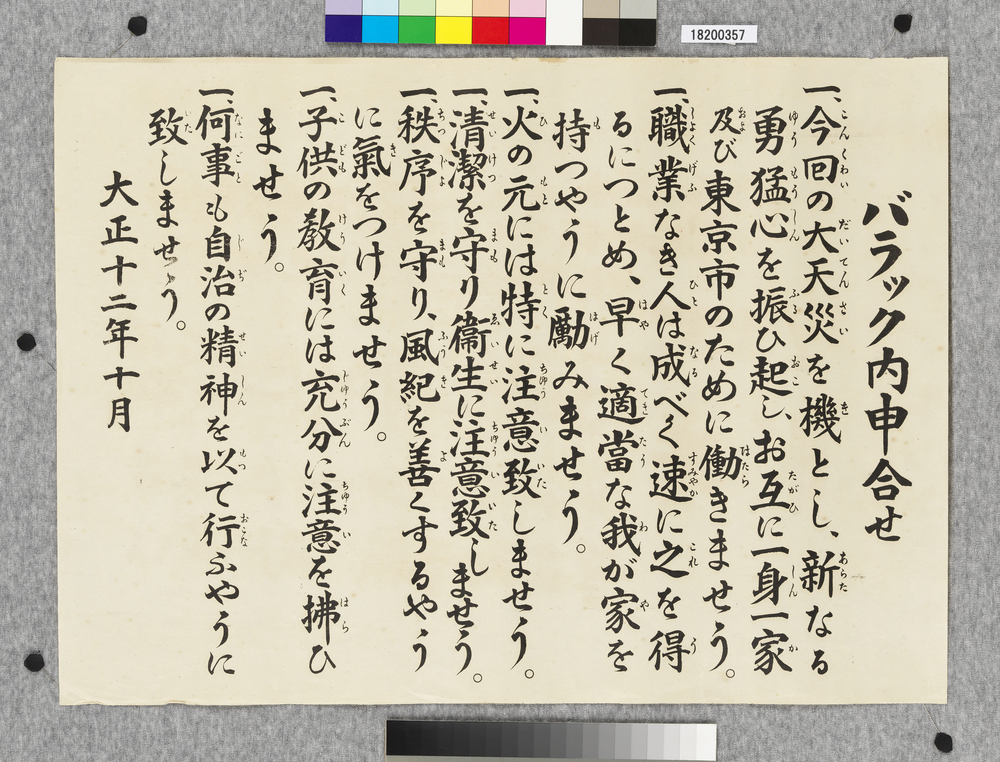 18200357
バラック内申合せ
一、今回の大天災を機とし、新なる
勇猛心を振ひ起し、お互に一身一家
及び東京市のために働きませう。
一、職業なき人は成べく速に之を得
るにつとめ、早く適當な我が家を
持つやうに勵みませう。
一、火の元には特に注意致しませう。
一、清潔を守り衞生に注意致しませう。
一、秩序を守り、風紀を善くするやう
に氣をつけませう。
一、子供の敎育には充分に注意を拂ひ
ませう。
一、何事も自治の精神を以て行ふやうに
致しませう。
大正十二年十月